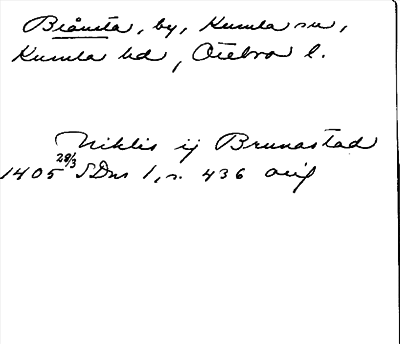 Blånsta, by, Kumla sn,
Kumla hd, Örebro l.
Niklis ij Brunastad
1405 28/3 SDns 1, s. 436 orig